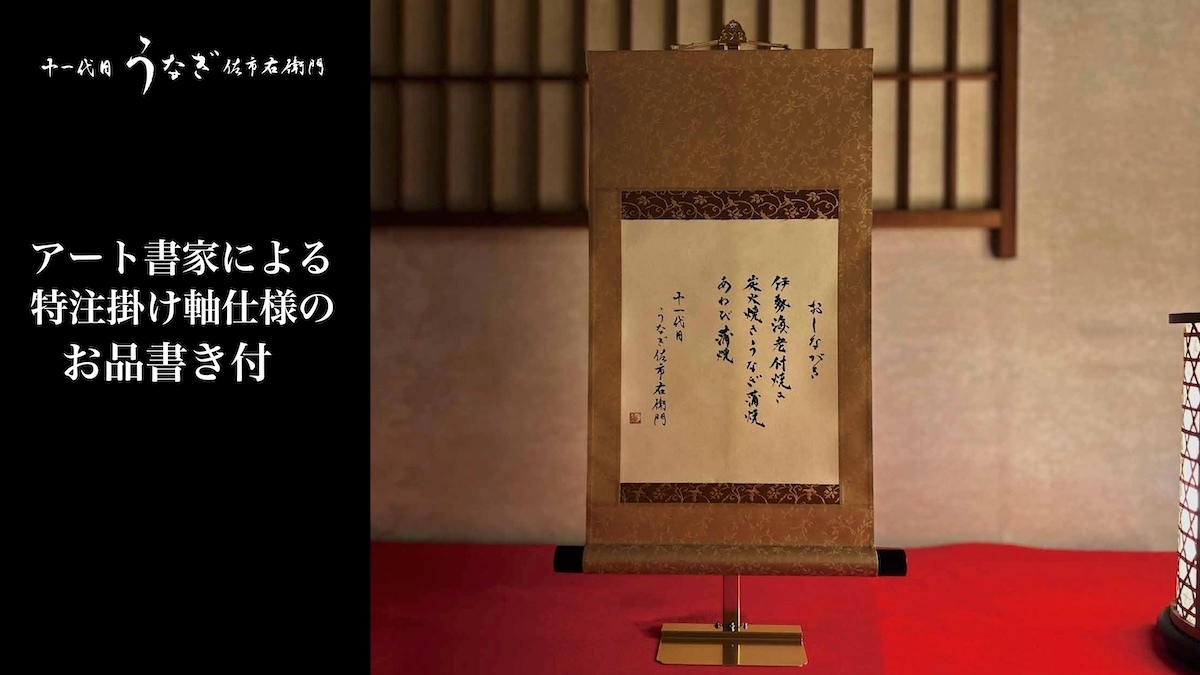 十一代目 うなぎ 佐市右衛門
アート書家による
特注掛け軸仕様の
お品書き付
おしながき
伊勢海老付焼き
炭火焼きうなぎ蒲焼
あわび蒲焼
十一代目
うなぎ佐市右衛門